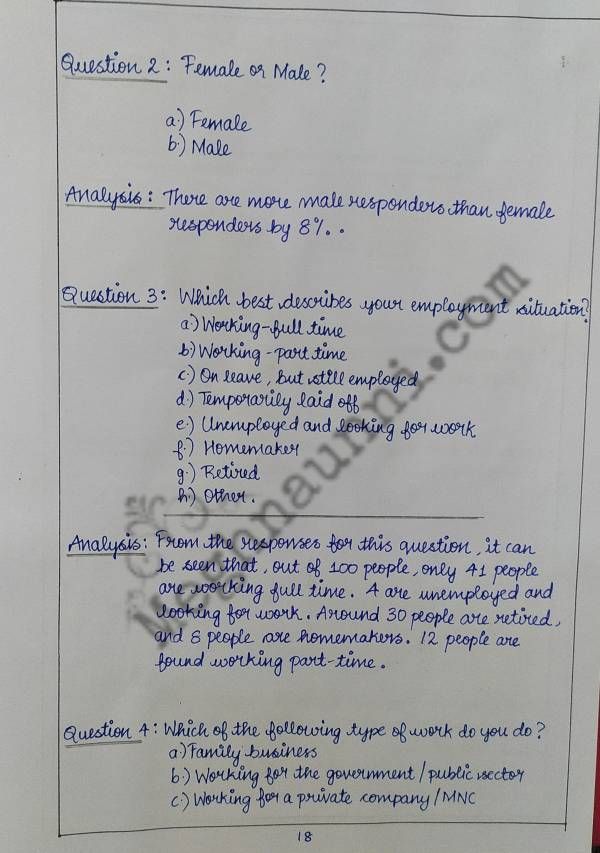 Question 2 : Female or Male ?
a.) Female
b.) Male
Analysis : There are more male responders than female
responders by 8%. .
Question 3 : Which best describes your employment situation?
a.) Working-full time
b.) Working-part time
c.) On leave, but still employed
d.) Temporarily laid off
e.) Unemployed and looking for work
f.) Homemaker
g.) Retired
h.) Other.
Analysis : From the responses for this question, it can
be seen that, out of 100 people, only 41 people
are working full time. 4 are unemployed and
looking for work. Around 30 people are retired,
and 8 people are homemakers. 12 people are
found working part-time.
Question 4 : Which of the following type of work do you do ?
a.) Family business
b.) Working for the government / public sector
c.) Working for a private company / MNC
18